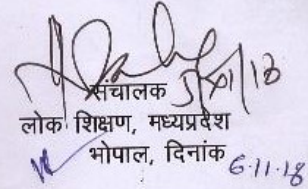 संचालक 5/11/18
लोक शिक्षण, मध्यप्रदेश
भोपाल, दिनांक 6.11.18